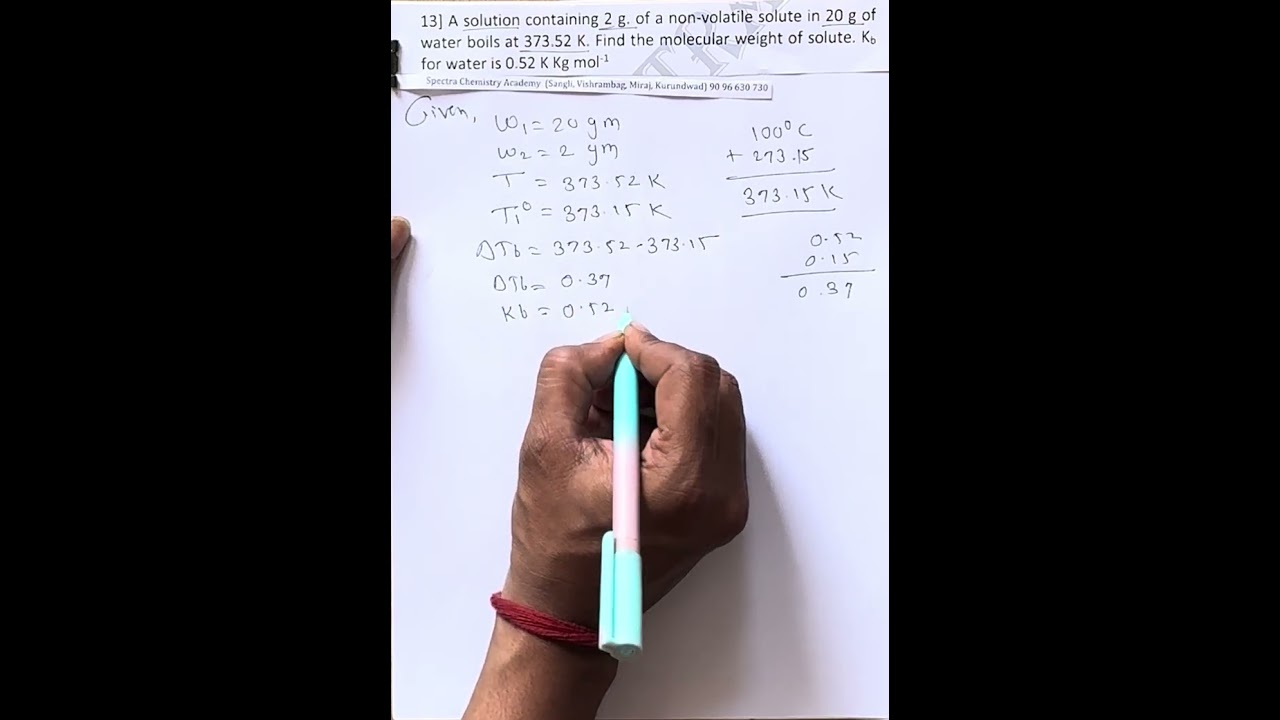 13] A solution containing 2 g. of a non-volatile solute in 20 g of
water boils at 373.52 K. Find the molecular weight of solute. Kb
for water is 0.52 K Kg mol-1
Spectra Chemistry Academy (Sangli, Vishrambag, Miraj, Kurundwad) 90 96 630 730
Given,
W1 = 20 gm
W2 = 2 gm
T = 373.52 K
T1⁰ = 373.15 K
ΔTb = 373.52 - 373.15
ΔTb = 0.37
Kb = 0.52
100⁰ C
+ 273.15
373.15 K
0.52
0.15
0.37